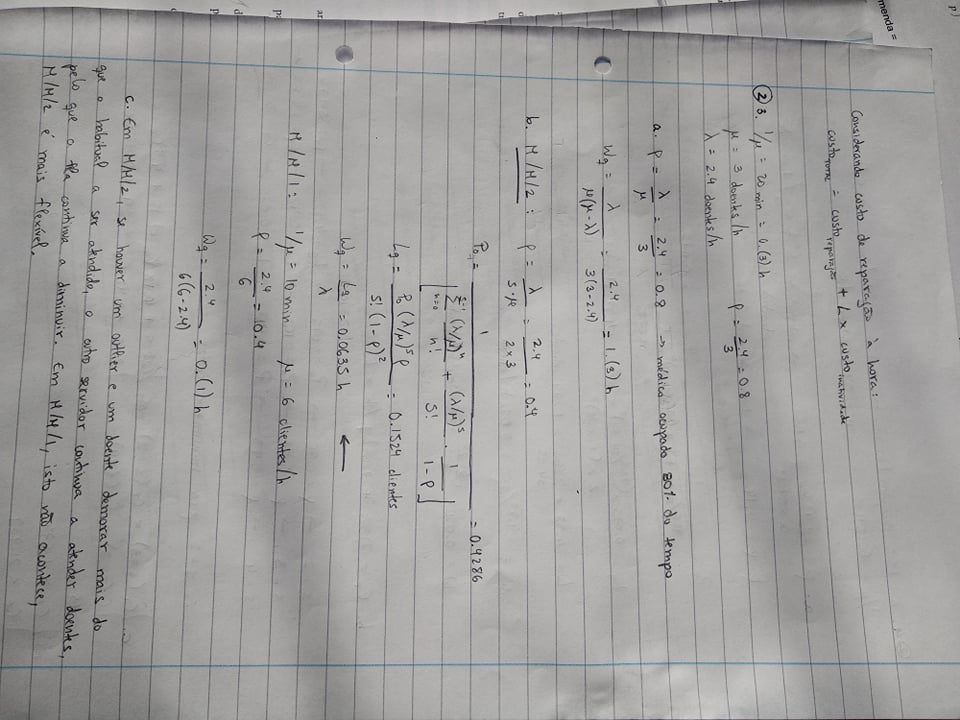 p)
menda =
Considerando custo de reparação à hora:
custo_TOTAL = custo_reparação + L x custo_inatividade
② 3. 1/μ = 20 min = 0.(3) h
μ = 3 doentes/h ρ = 2.4/3 = 0.8
λ = 2.4 doentes/h
a. ρ = λ/μ = 2.4/3 = 0.8 → médico ocupado 80% do tempo
Wq = λ/μ(μ-λ) = 2.4/3(3-2.4) = 1.(3) h
b. M/M/2: ρ = λ/s·μ = 2.4/2×3 = 0.4
P₀ = 1/[Σ_{n=0}^{s-1} (λ/μ)^n/n! + (λ/μ)^s/s! · 1/1-ρ] = 0.4286
Lq = P₀(λ/μ)^s ρ/s!(1-ρ)² = 0.1524 clientes
Wq = Lq/λ = 0.0635 h ←
M/M/1: 1/μ = 10 min μ = 6 clientes/h
ρ = 2.4/6 = 0.4
Wq = 2.4/6(6-2.4) = 0.(1) h
c. Em M/M/2, se houver um outlier e um doente demorar mais do
que o habitual a ser atendido, o outro servidor continua a atender doentes,
pelo que a fila continua a diminuir. Em M/M/1, isto não acontece,
M/M/2 é mais flexível.